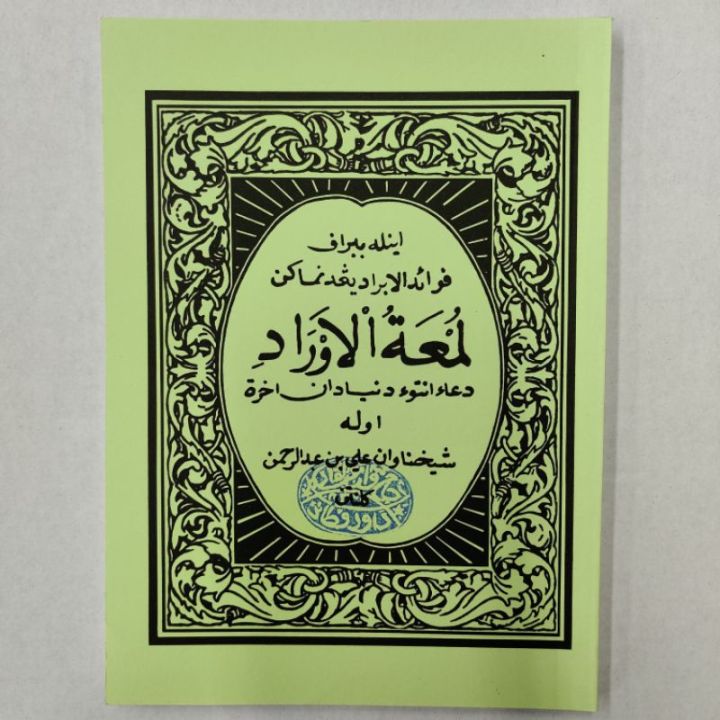 اينله ببراف
فوائد الابراد يڠدنماكن
لُمْعَةُ الْاَوْرَادِ
دعاء انتوء دنيا دان اخرة
اوله
شيخنا وان علي بن عبدالرحمن
كلنتن